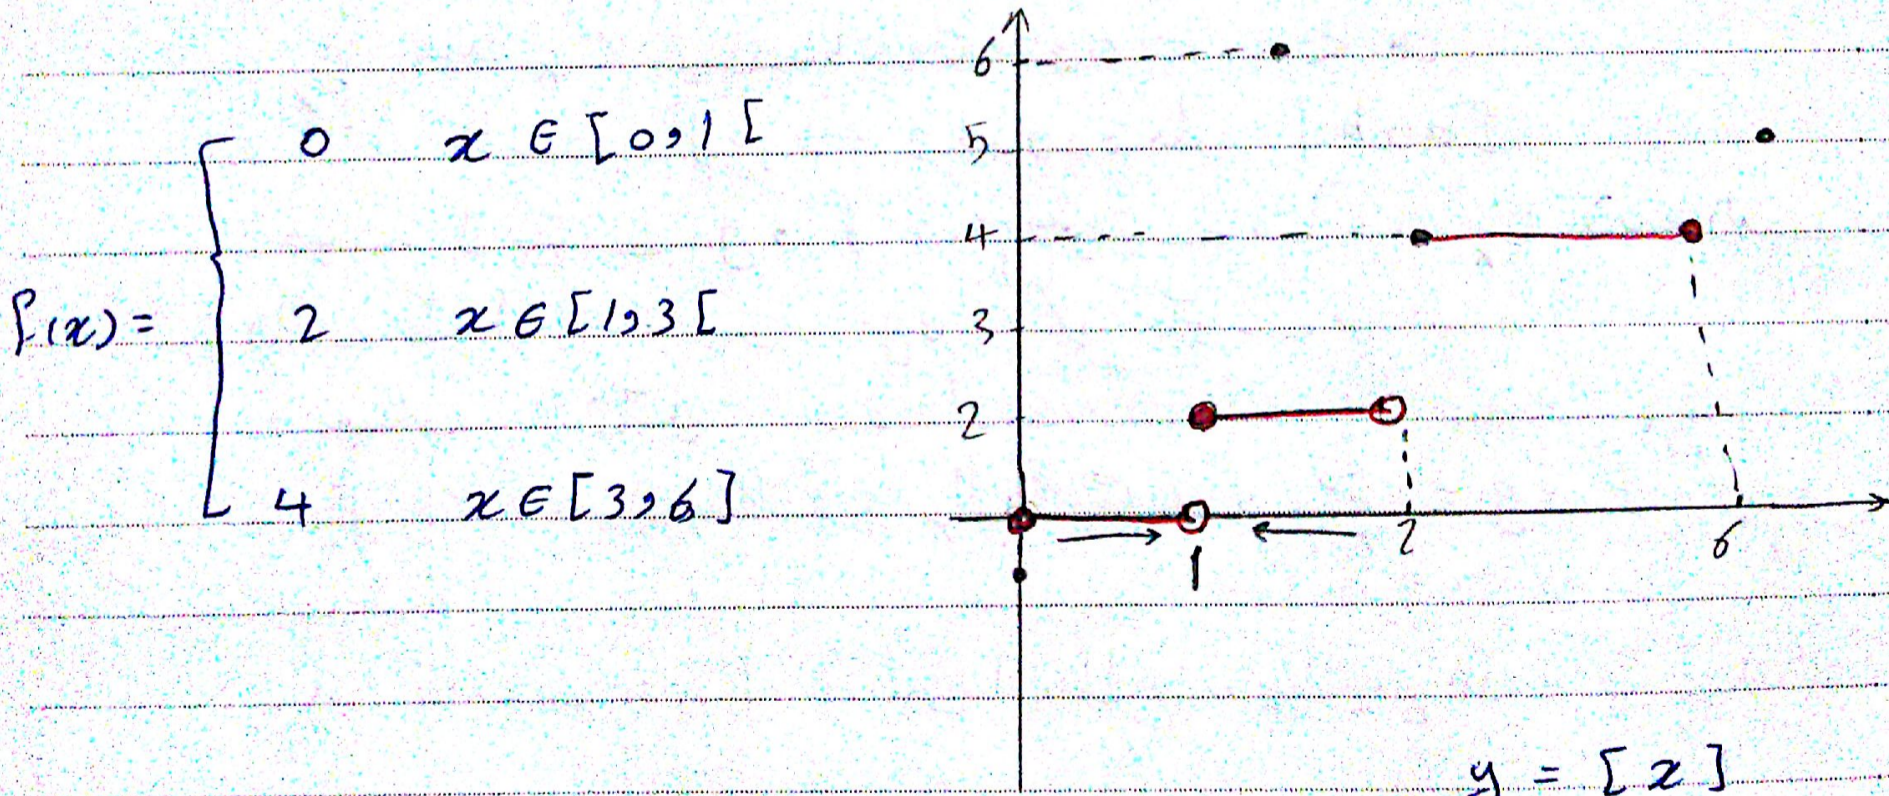 0 x ∈ [0,1[
f(x) = 2 x ∈ [1,3[
4 x ∈ [3,6]
6
5
4
3
2
1 2 6
y = [x]